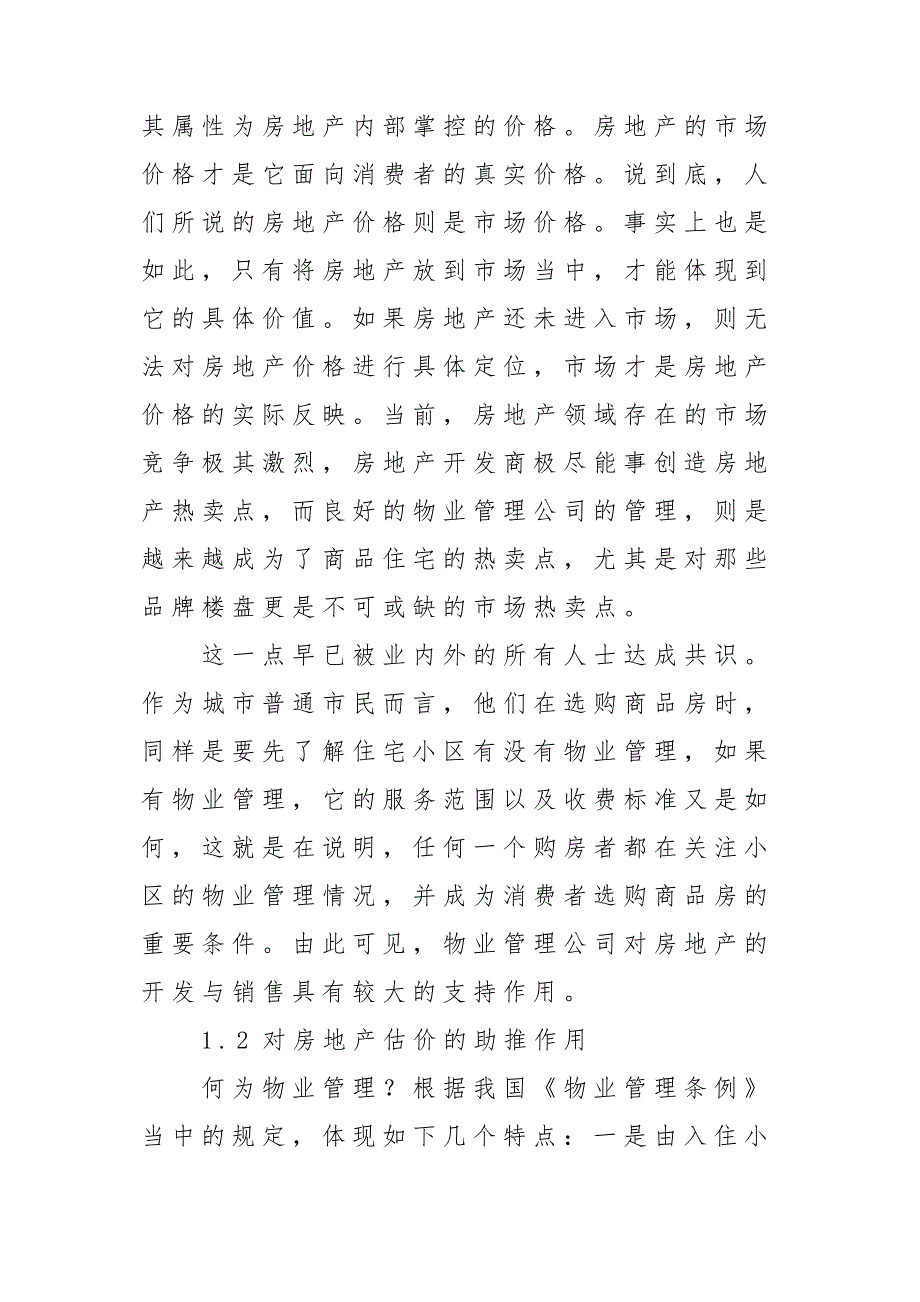 其属性为房地产内部掌控的价格。房地产的市场
价格才是它面向消费者的真实价格。说到底，人
们所说的房地产价格则是市场价格。事实上也是
如此，只有将房地产放到市场当中，才能体现到
它的具体价值。如果房地产还未进入市场，则无
法对房地产价格进行具体定位，市场才是房地产
价格的实际反映。当前，房地产领域存在的市场
竞争极其激烈，房地产开发商极尽能事创造房地
产热卖点，而良好的物业管理公司的管理，则是
越来越成为了商品住宅的热卖点，尤其是对那些
品牌楼盘更是不可或缺的市场热卖点。
这一点早已被业内外的所有人士达成共识。
作为城市普通市民而言，他们在选购商品房时，
同样是要先了解住宅小区有没有物业管理，如果
有物业管理，它的服务范围以及收费标准又是如
何，这就是在说明，任何一个购房者都在关注小
区的物业管理情况，并成为消费者选购商品房的
重要条件。由此可见，物业管理公司对房地产的
开发与销售具有较大的支持作用。
1.2 对房地产估价的助推作用
何为物业管理？根据我国《物业管理条例》
当中的规定，体现如下几个特点：一是由入住小